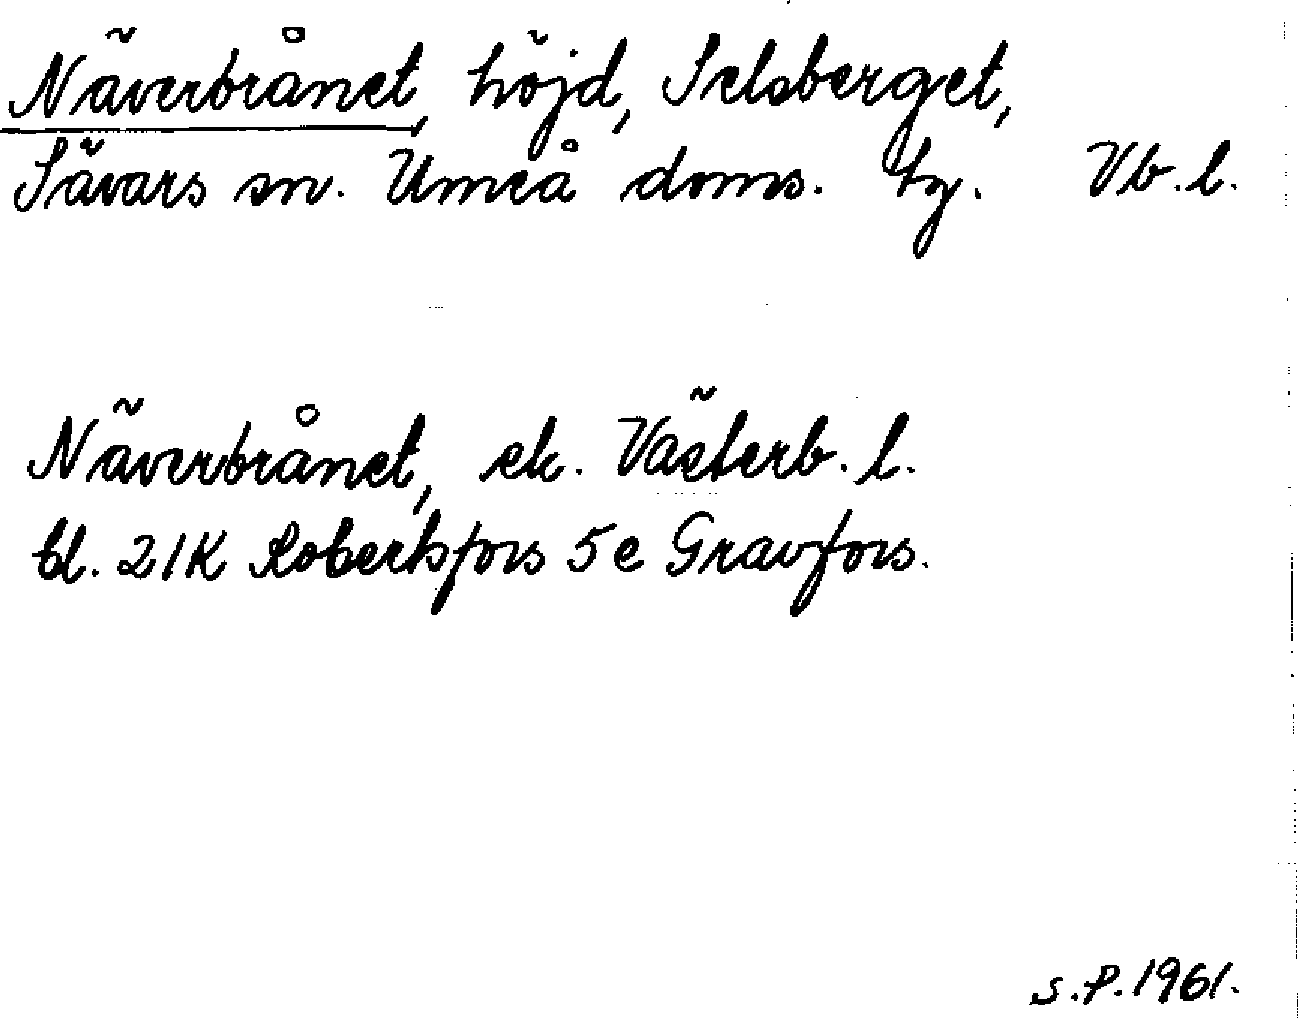 Näverbrånet, höjd, Selsberget,
Sävars sn. Umeå doms. tg. Vb.l.
Näverbrånet, ek. Västerb. l.
bl. 21K Robertsfors 5e Gravfors.
S.P. 1961.